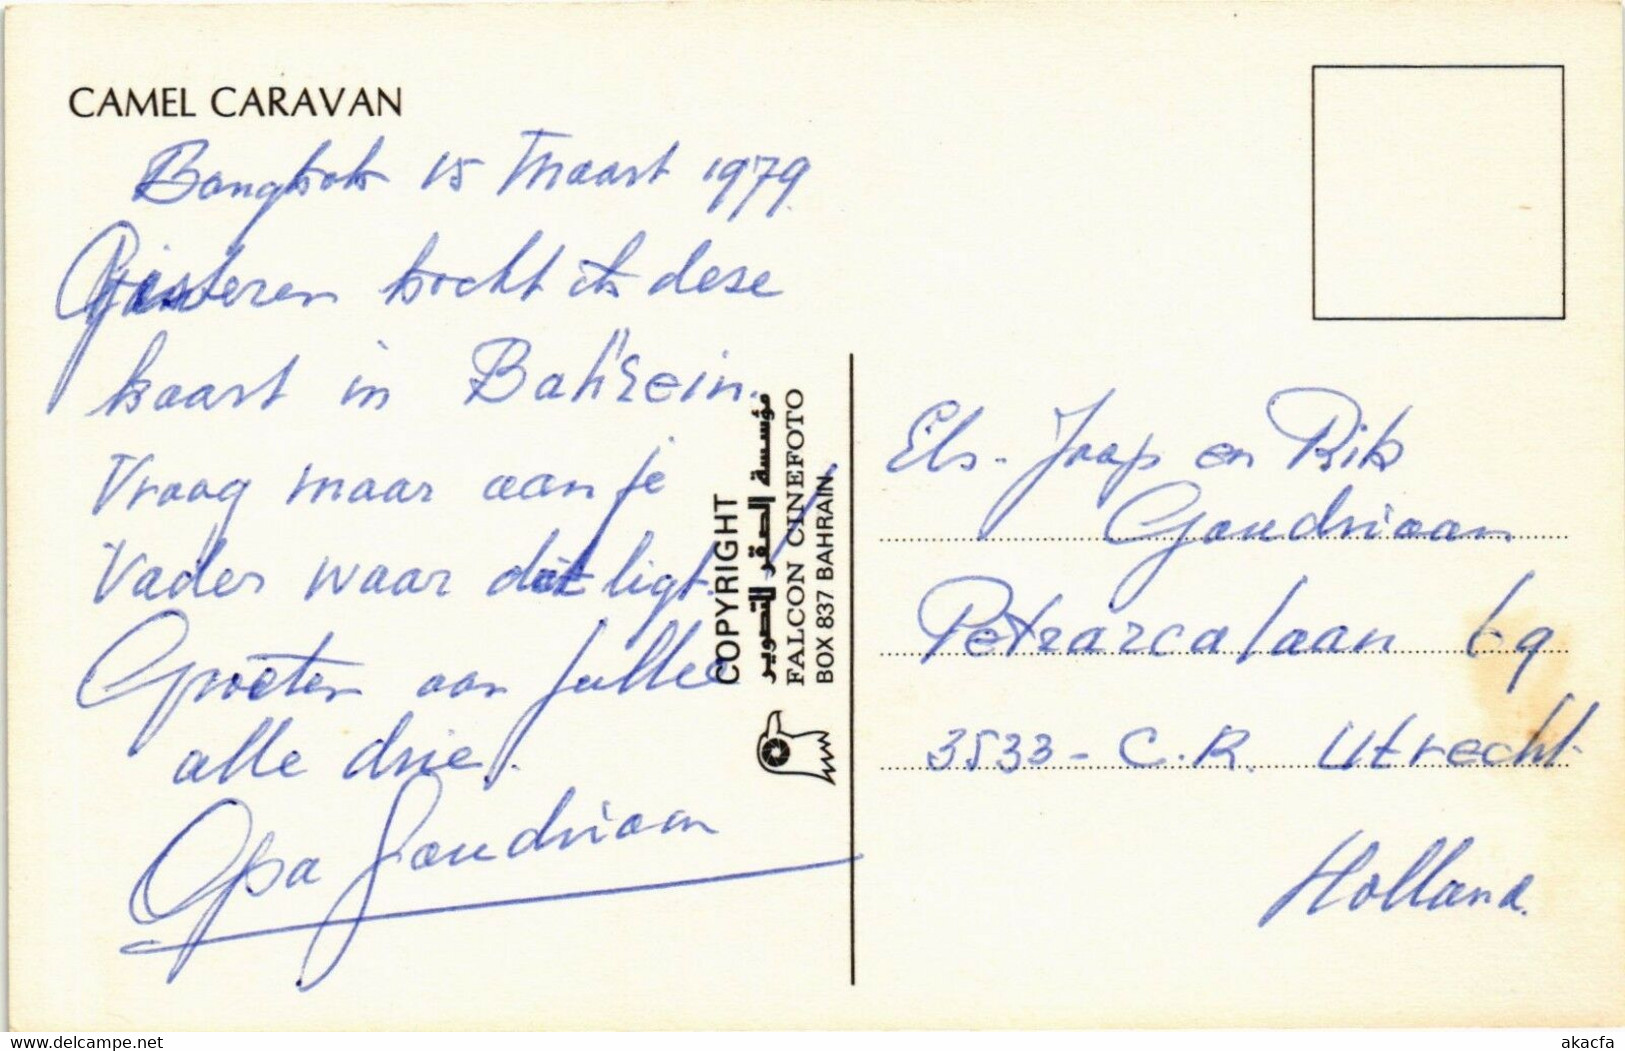 CAMEL CARAVAN
Bangkok 15 Maart 1979.
Gisteren kocht ik deze
kaart in Bahrein.
Vraag maar aan je
Vader waar dit ligt.
Groeten aan jullie
alle drie.
Opa Goudriaan
COPYRIGHT
مؤسسة الصقر للتصوير
FALCON CINEFOTO
BOX 837 BAHRAIN.
Els - Jaap en Rik
Goudriaan
Petrarcalaan 69
3533 - C.R. Utrecht.
Holland.
delcampe.net
akacfa